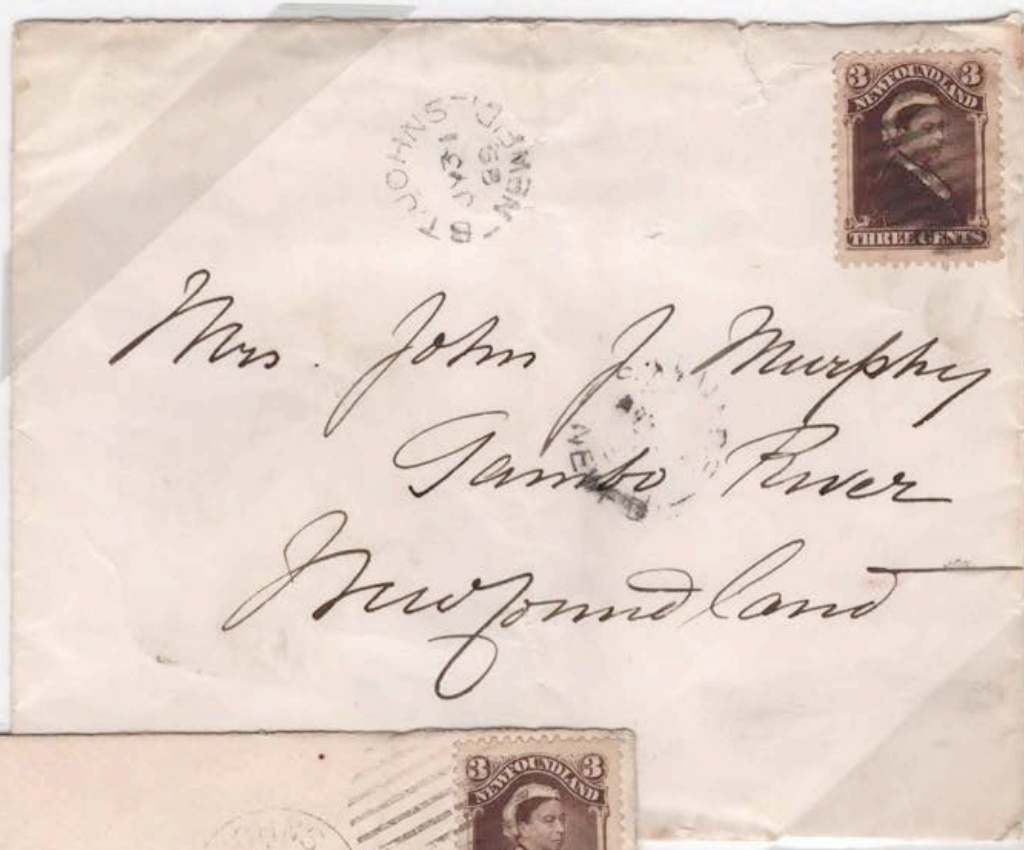 3 NEWFOUNDLAND 3
THREE CENTS
ST. JOHN'S - NEWF'D.
JY 31
Mrs. John J. Murphy
Gambo River
Newfoundland
NEWF'D
3 NEWFOUNDLAND 3